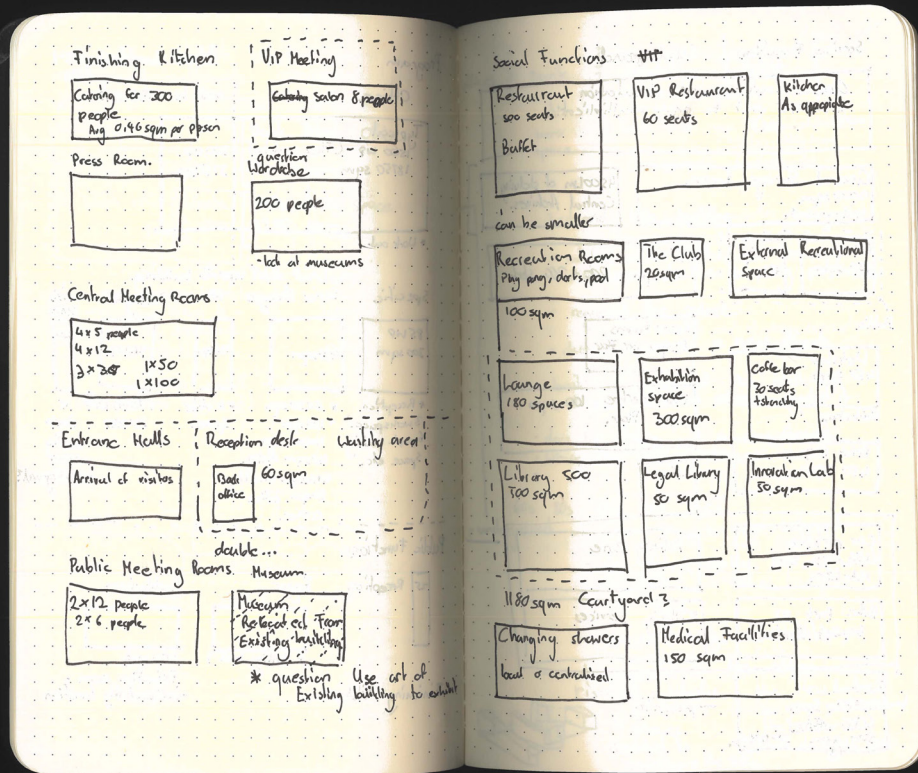 Finishing Kitchen
Catering for 300
people
Avg 0,46 sqm per person
VIP Meeting
Catering Salon 8 people
Press Room.
question
Wardrobe
200 people
- look at museums
Central Meeting Rooms
4x5 people
4x12
3x30
1x50
1x100
Entrance Halls
Arrival of visitors
Reception desk
Waiting area
Back
office
60 sqm
double...
Public Meeting Rooms.
2x12 people
2x6 people
Museum
Museum
Relocated From
Existing building
* question Use art of
Existing building to exhibit
Social Functions VIP
Restaurant
500 seats
Buffet
VIP Restaurant
60 seats
Kitchen
As appropiate
can be smaller
Recreation Rooms
Ping pong, darts, pool
100 sqm
The Club
20 sqm
External Recreational
Space
Lounge
180 spaces
Exhibition
space
300 sqm
Coffe bar
30 seats
+ standing
Library 500
500 sqm
Legal Library
50 sqm
Innovation Lab
50 sqm
1180 sqm Courtyard?
Changing showers
local o centralised.
Medical Facilities
150 sqm